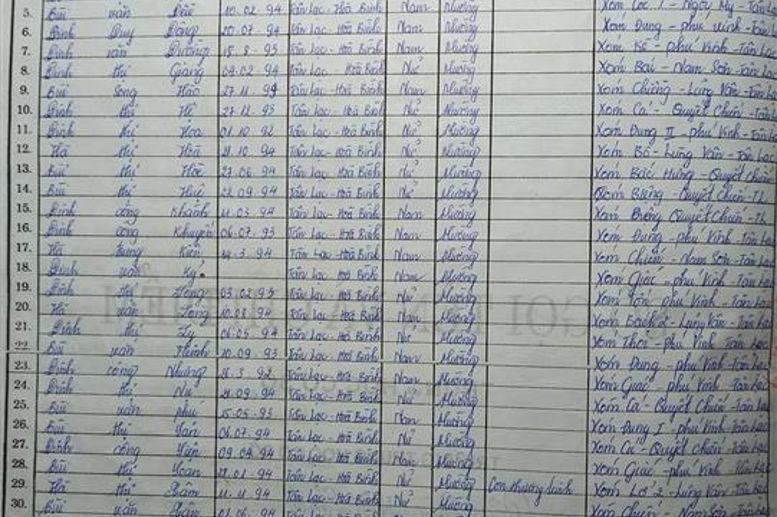 5. Bùi văn 10.02.94 Tân Lạc - Hoà Bình Nam Mường
6. Đinh Duy 20.07.94 Tân Lạc - Hoà Bình Nam Mường Xóm Dung - phú Vinh - Tân Lạc
7. Đinh văn Đường 18.8.93 Tân Lạc - Hoà Bình Nam Mường Xóm Kè - phú Vinh - Tân Lạc
8. Đinh thị Giang 04.02.94 Tân Lạc - Hoà Bình Nữ Mường Xóm Bái - Nam Sơn - Tân Lạc
9. Bùi Song Hào 27.11.94 Tân Lạc - Hoà Bình Nam Mường Xóm Chiềng - Lũng Vân - Tân Lạc
10. Đinh thị 27.12.93 Tân Lạc - Hoà Bình Nữ Mường Xóm Cá - Quyết Chiến - Tân
11. Đinh thị Hoa 01.10.92 Tân Lạc - Hoà Bình Nữ Mường Xóm Dung II - phú Vinh - Tân Lạc
12. Hà thị Hoà 21.10.94 Tân Lạc - Hoà Bình Nữ Mường Xóm Bó - Lũng Vân - Tân Lạc
13. Bùi thị 27.06.94 Tân Lạc - Hoà Bình Nữ Mường Xóm Bắc Hưng - Quyết Chiến
14. Bùi thị Huế 22.09.94 Tân Lạc - Hoà Bình Nữ Mường Xóm Biêng - Quyết Chiến - TL
15. Đinh công Khánh 11.03.94 Tân Lạc - Hoà Bình Nam Mường Xóm Biêng Quyết Chiến - TL
16. Đinh công Khuyên 06.07.93 Tân Lạc - Hoà Bình Nam Mường Xóm Dung - phú Vinh - Tân Lạc
17. Hà trung Kiên 3.94 Tân Lạc - Hoà Bình Nam Mường Xóm Chiềng - Nam Sơn - Tân Lạc
18. Đinh văn Kỳ Tân Lạc - Hoà Bình Nam Mường Xóm Giác - phú Vinh - Tân Lạc
19. Đinh thị 03.02.93 Tân Lạc - Hoà Bình Nữ Mường Xóm Tân phú Vinh - Tân Lạc
20. Hà văn 10.08.94 Tân Lạc - Hoà Bình Nam Mường Xóm Bách 2 - Lũng Vân - Tân Lạc
21. Đinh thị Ly 06.05.94 Tân Lạc - Hoà Bình Nữ Mường Xóm Thoi - phú Vinh Tân Lạc
22. Bùi văn 10.09.93 Tân Lạc - Hoà Bình Nam Mường Xóm Dung - phú Vinh - Tân Lạc
23. Đinh công Nhưng 3.92 Tân Lạc - Hoà Bình Nam Mường Xóm Giác - phú Vinh - Tân Lạc
24. Đinh thị Nụ 21.09.94 Tân Lạc - Hoà Bình Nữ Mường Xóm Cá - Quyết Chiến - Tân Lạc
25. Bùi văn phú 15.05.93 Tân Lạc - Hoà Bình Nam Mường Xóm Dung I - phú Vinh - Tân Lạc
26. Bùi thị 06.07.94 Tân Lạc - Hoà Bình Nữ Mường Xóm Cá - Quyết Chiến - Tân Lạc
27. Đinh công 09.08.94 Tân Lạc - Hoà Bình Nam Mường Xóm Giác - phú Vinh - Tân Lạc
28. Bùi thị 01.94 Tân Lạc - Hoà Bình Nữ Mường
29. Hà thị 11.11.94 Tân Lạc - Hoà Bình Nữ Mường Con thương binh Xóm 2 - Lũng Vân - Tân Lạc
30. Bùi văn 06.94 Tân Lạc - Hoà Bình Nam Mường Xóm Chiềng - Nam Sơn - Tân Lạc